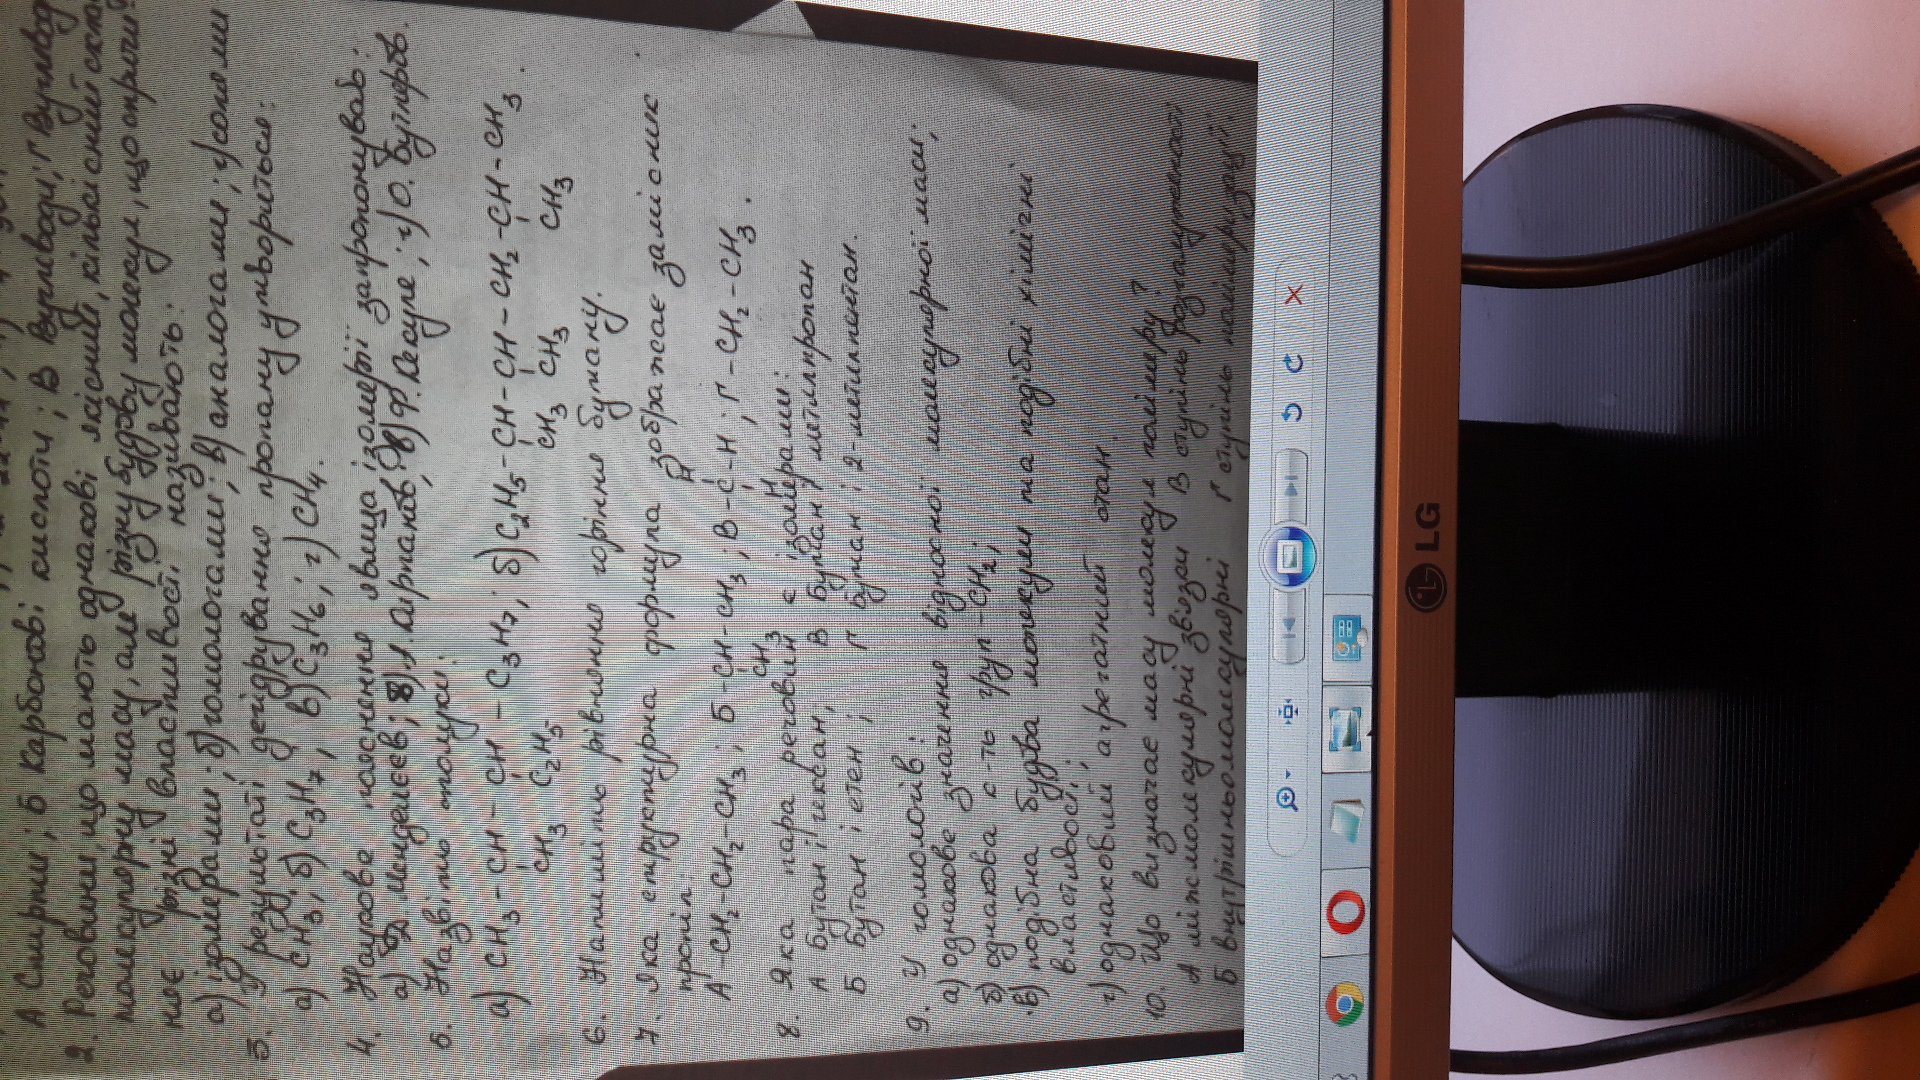 А Спирти; Б карбонові кислоти; В вуглеводи; Г Вуглевод
2. Речовини, що мають однакові якісний, кількісний скла
молекулярну масу, але різну будову молекул, що спричи
нює різні властивості, називають:
а) ізомерами; б) гомологами; в) аналогами; г) солями
3. У результаті дегідрування пропану утвориться:
а) CH3; б) C3H7; в) C3H6; г) CH4.
4. Наукове пояснення явища ізомерії запропонував:
а) Д. Менделєєв; б) Ф. Велер; г) О. Бутлеров.
5. Назвіть сполуки:
а) CH3-CH-CH-C3H7; б) C2H5-CH-CH-CH2-CH-CH3.
CH3 C2H5 CH3 CH3 CH3
6. Напишіть рівняння горіння бутану.
7. Яка структурна формула зображає замісник
пропіл: H
А -CH2-CH2-CH3; Б -CH-CH3; В -C-H; Г -CH2-CH3.
CH3 H
8. Яка пара речовин є ізомерами:
А бутан і гексан; В бутан і метилпропан
Б бутан і етен; Г бутан і 2-метилпентан.
9. У гомологів:
а) однакове значення відносної молекулярної маси;
б) однакова к-ть груп -CH2;
в) подібна будова молекули та подібні хімічні
властивості;
г) однаковий агрегатний стан.
10. Що визначає масу молекул полімеру?
А міжмолекулярні зв'язки В ступінь розгалуженості
Б внутрішньомолекулярні Г ступінь полімеризації.
LG